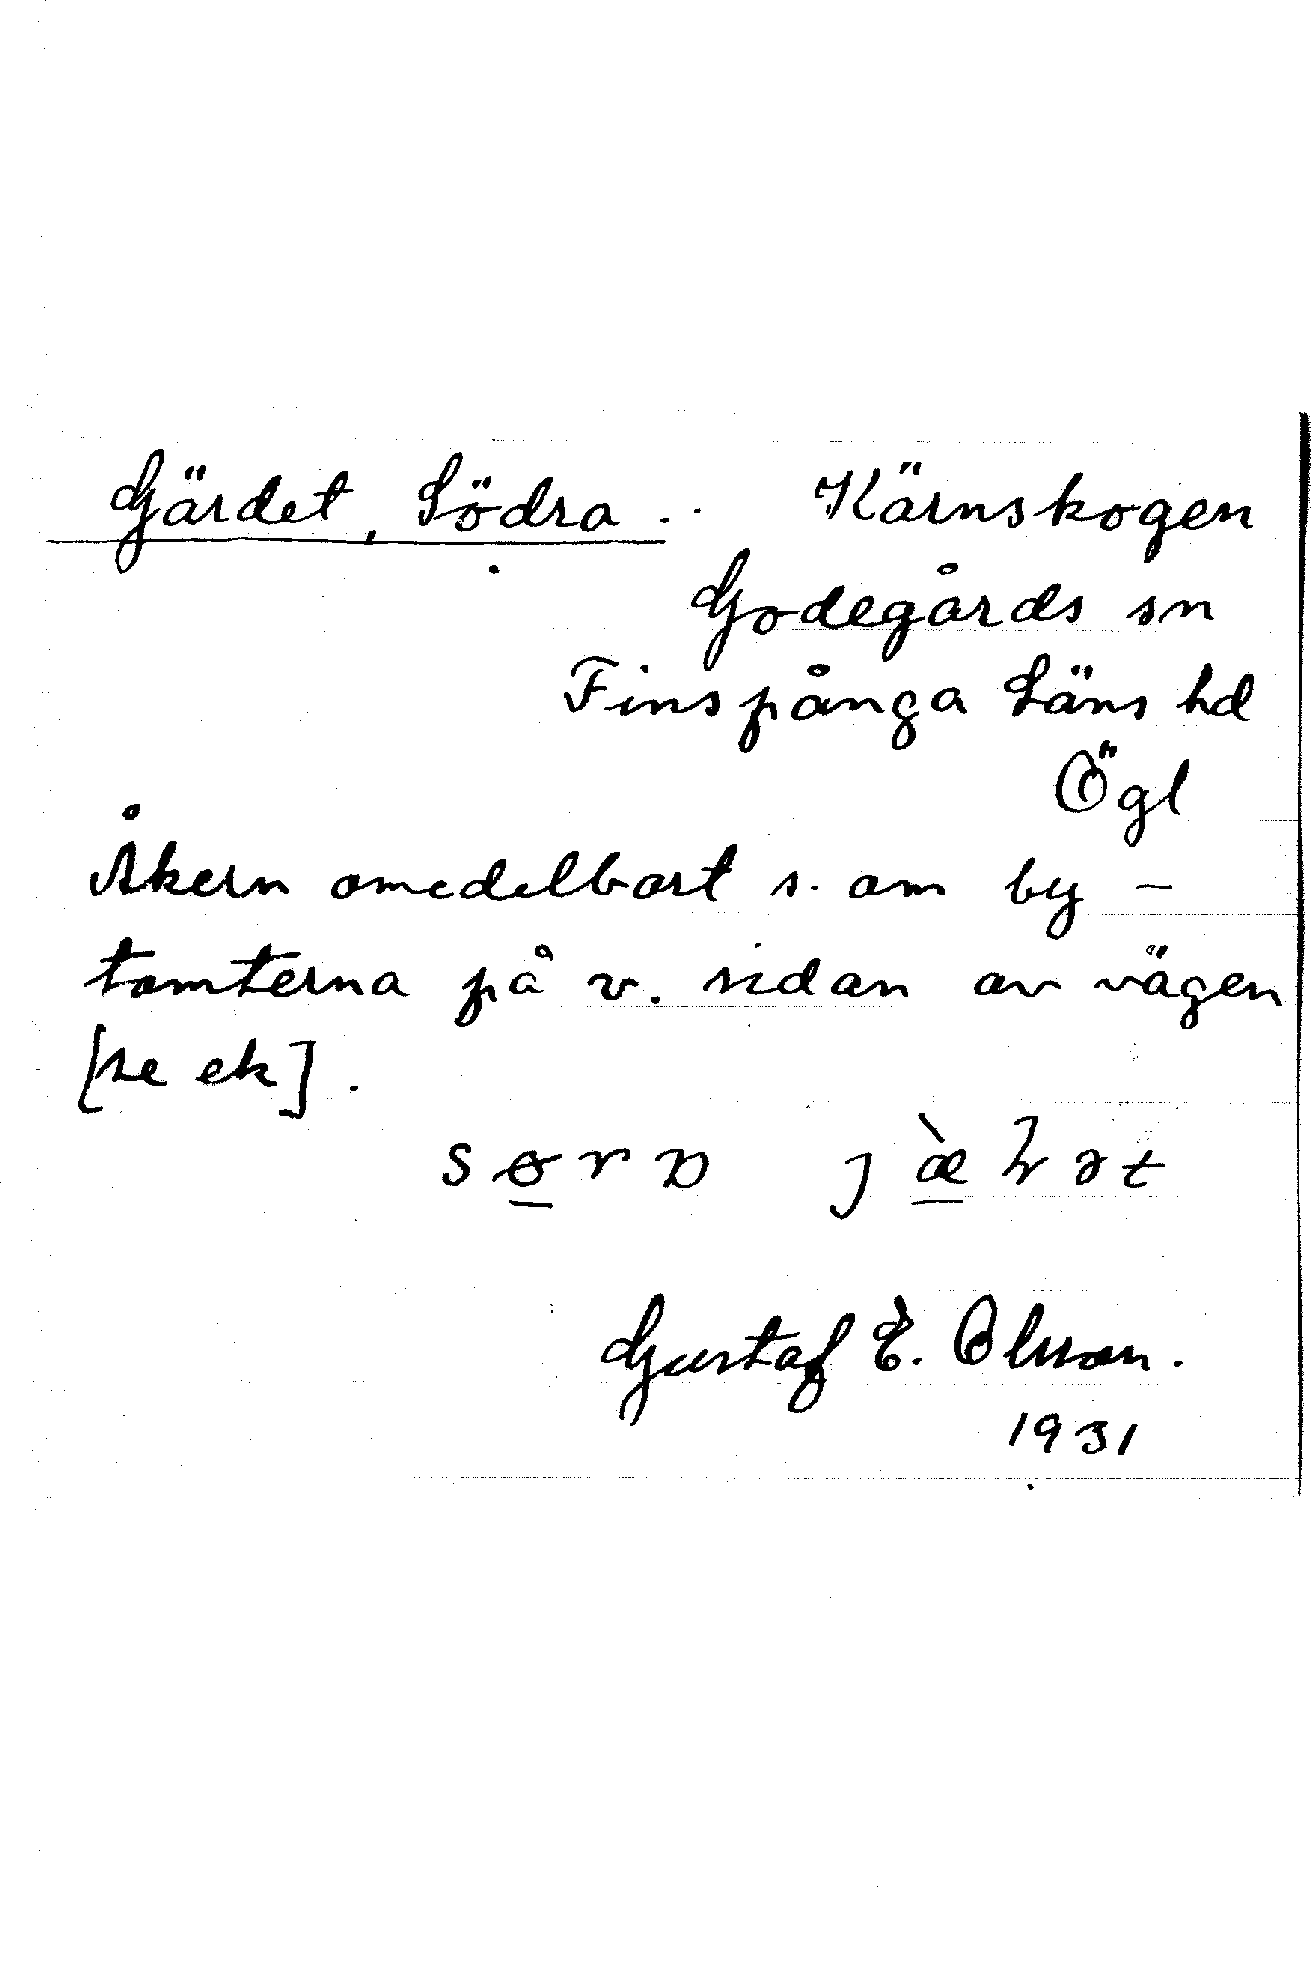 Gärdet, Södra. Kärnskogen
Godegårds sn
Finspånga Läns hd
Ögl
Åkern omedelbart s. om by-
tomterna på v. sidan av vägen
[se ek].
Gustaf E. Olsson.
1931